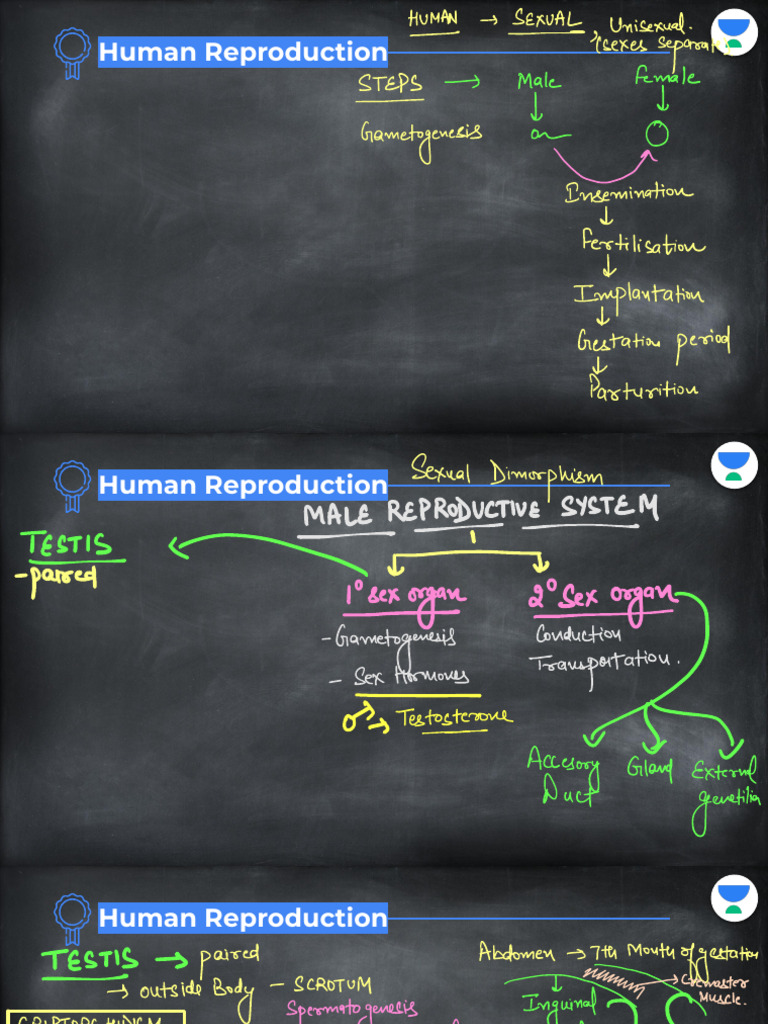 HUMAN → SEXUAL, Unisexual.
(sexes separate)
Human Reproduction
STEPS → Male Female
Gametogenesis
Insemination
↓
Fertilisation
↓
Implantation
↓
Gestation period
↓
Parturition
Human Reproduction
Sexual Dimorphism
MALE REPRODUCTIVE SYSTEM
TESTIS
- paired
1° sex organ
2° sex organ
- Gametogenesis
- Sex Hormones
→ Testosterone
Conduction
Transportation.
Accesory Duct
Gland
External genetilia
Human Reproduction
TESTIS → paired
→ outside Body - SCROTUM
Spermatogenesis
Abdomen → 7th Month of gestation
Cremaster Muscle.
Inguinal
CRIPTORCHIDISM